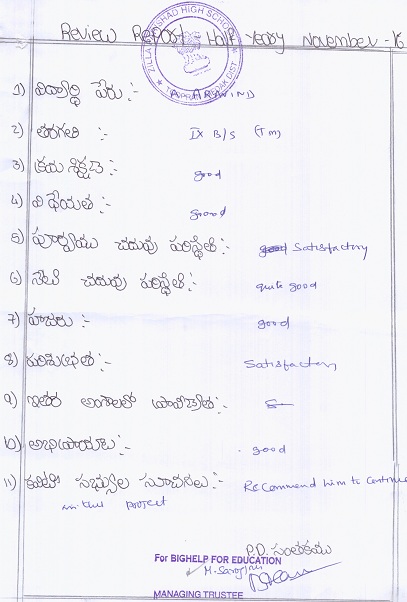 Review Report Half Yearly November - 16
ZILLA PARISHAD HIGH SCHOOL
1) విద్యార్థి పేరు :- A ARAVIND
2) తరగతి :- IX B/S (Tm)
3) క్రమశిక్షణ :- good
4) విధేయత :- good
5) పూర్వపు చదువు పరిస్థితి :- good Satisfactory
6) నేటి చదువు పరిస్థితి :- quite good
7) హాజరు :- good
8) పరిశుభ్రత :- Satisfactory
9) ఇతర అంశాలలో :-
10) అభిప్రాయాలు :- good
11) కమిటీ సభ్యుల సూచనలు :- Recommend him to continue
with the project
P.D. సంతకము
For BIGHELP FOR EDUCATION
MANAGING TRUSTEE